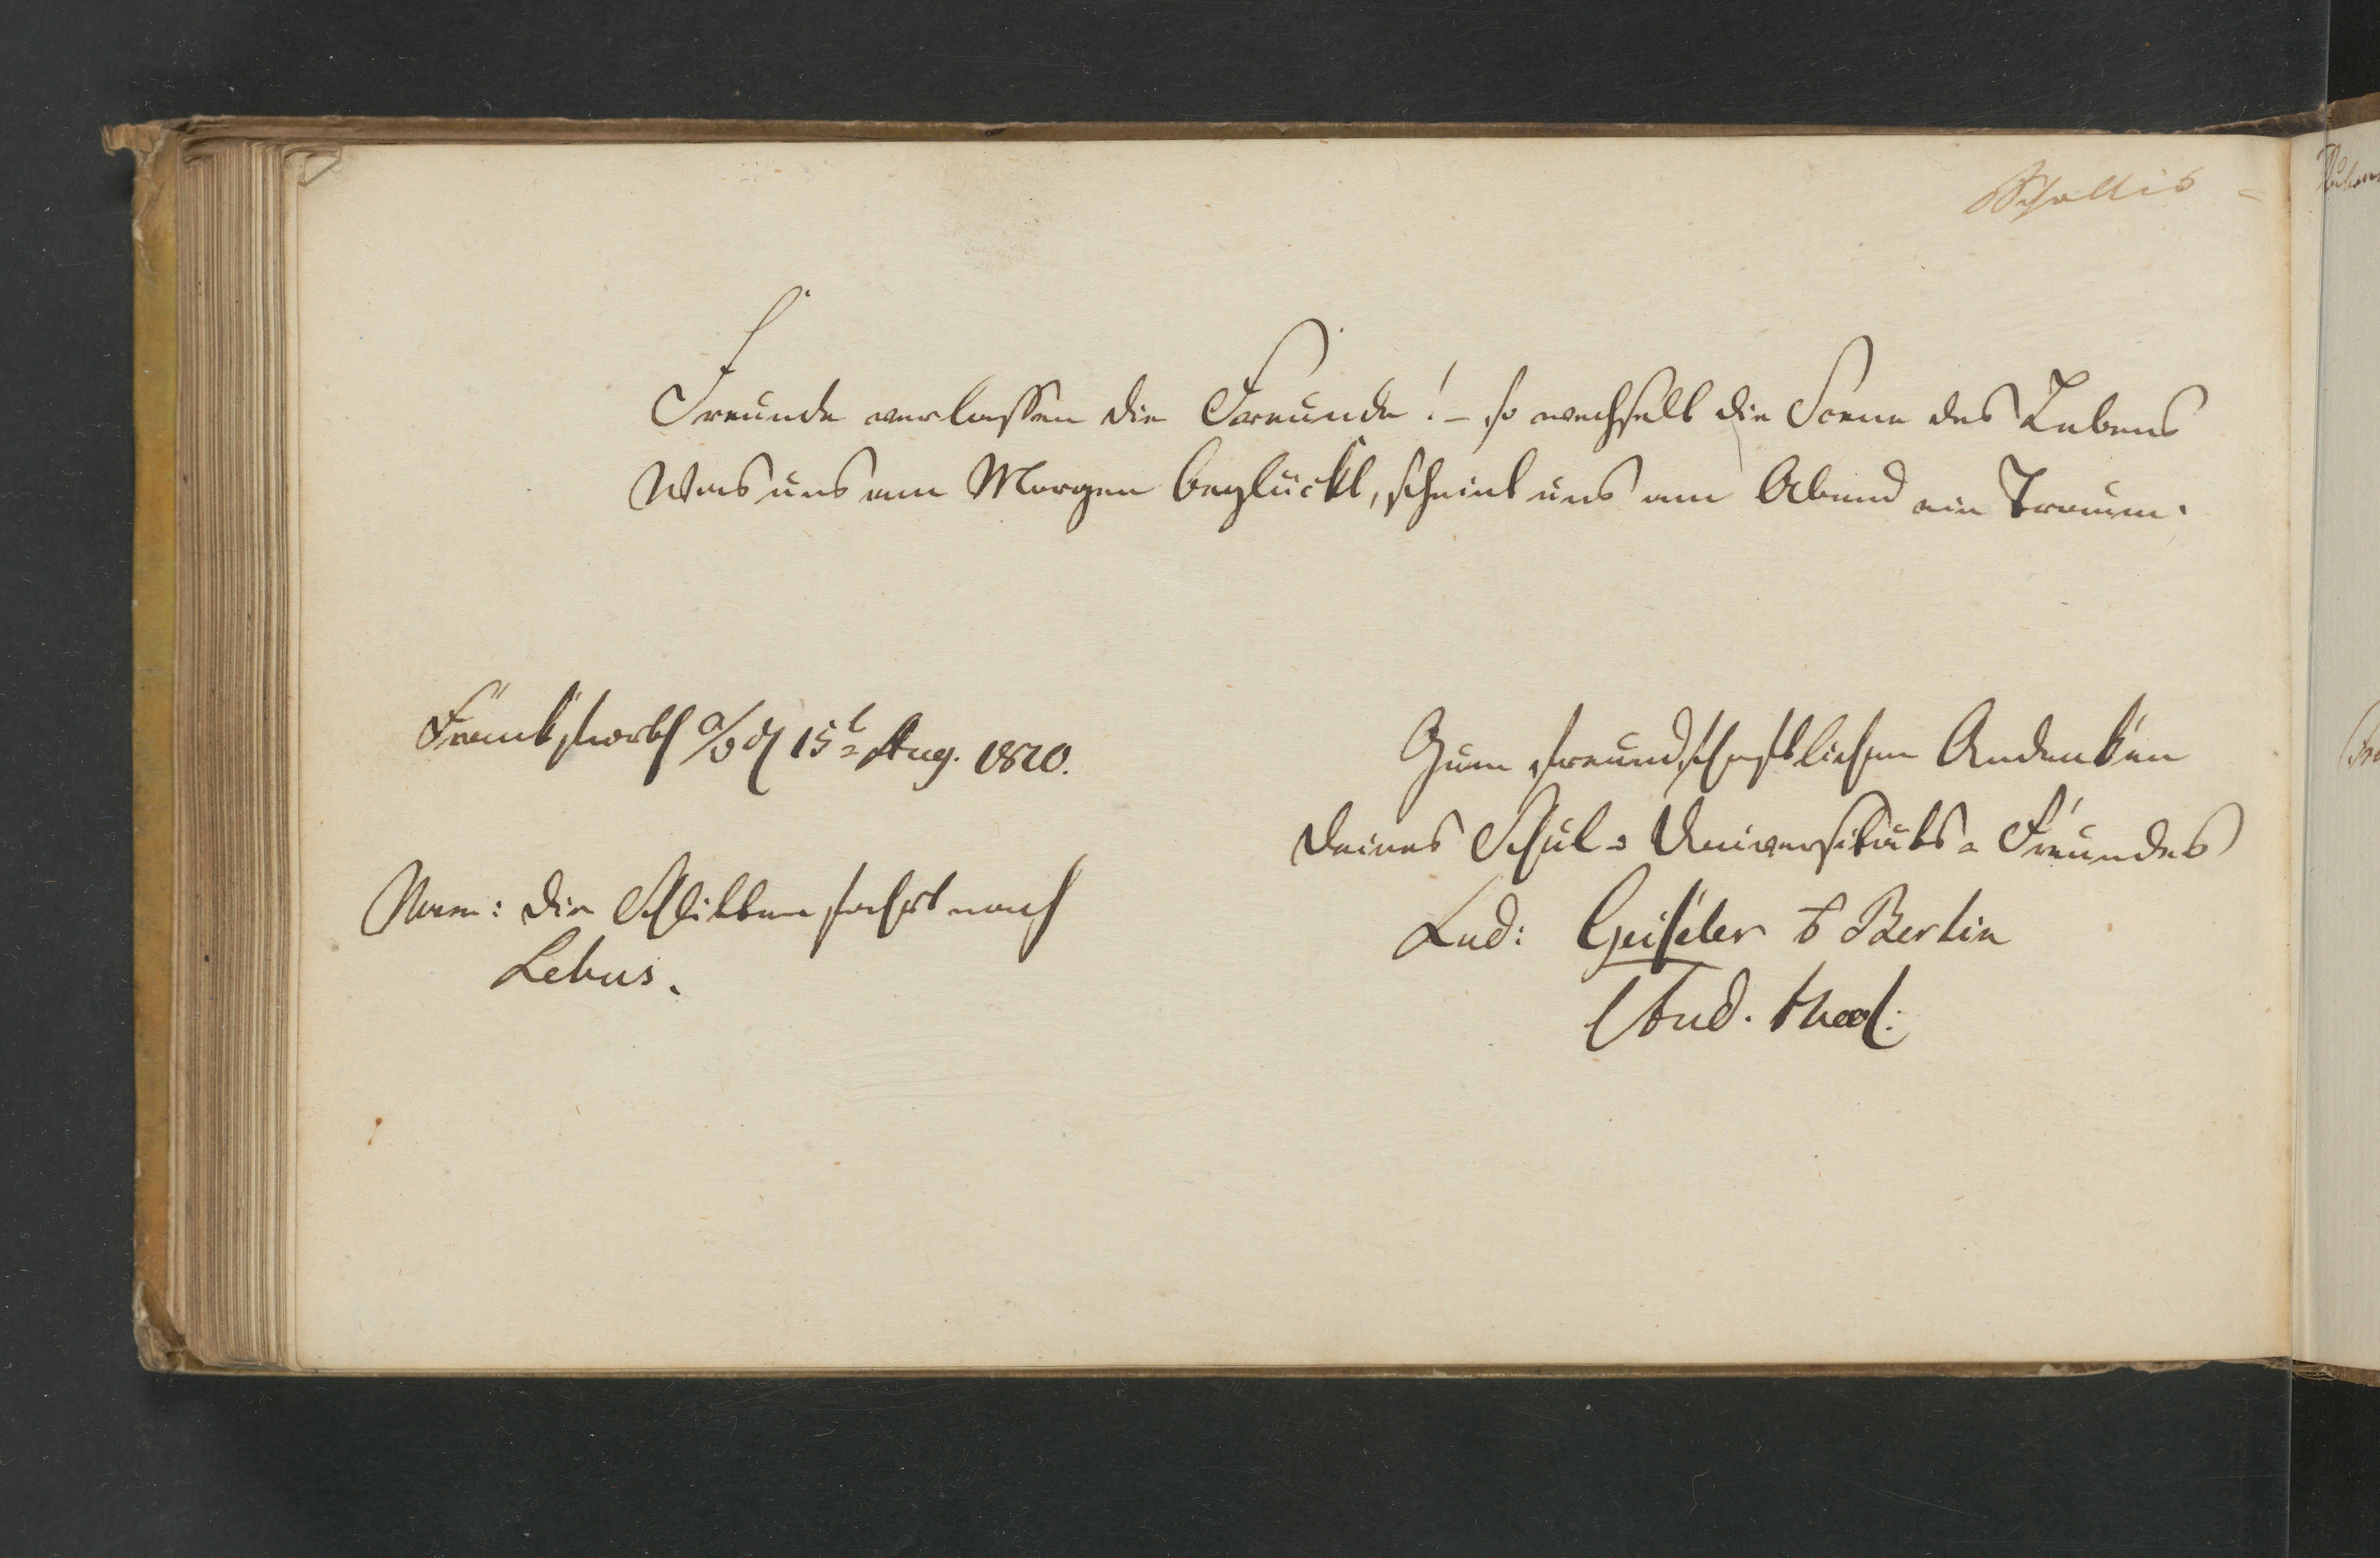 Freunde verlassen die Freunde! – so wechselt die Scene des Lebens
Was uns am Morgen beglückt, scheint uns am Abend ein Traum.
Frankfurth a/O d 15t Aug. 1820.
Zum freundschaftlichen Andenken
deines Schul- Universitäts- Freundes
Mem: die Schlittenfahrt nach
Lebus.
Lud: Geiseler Berlin
Stud. theol: